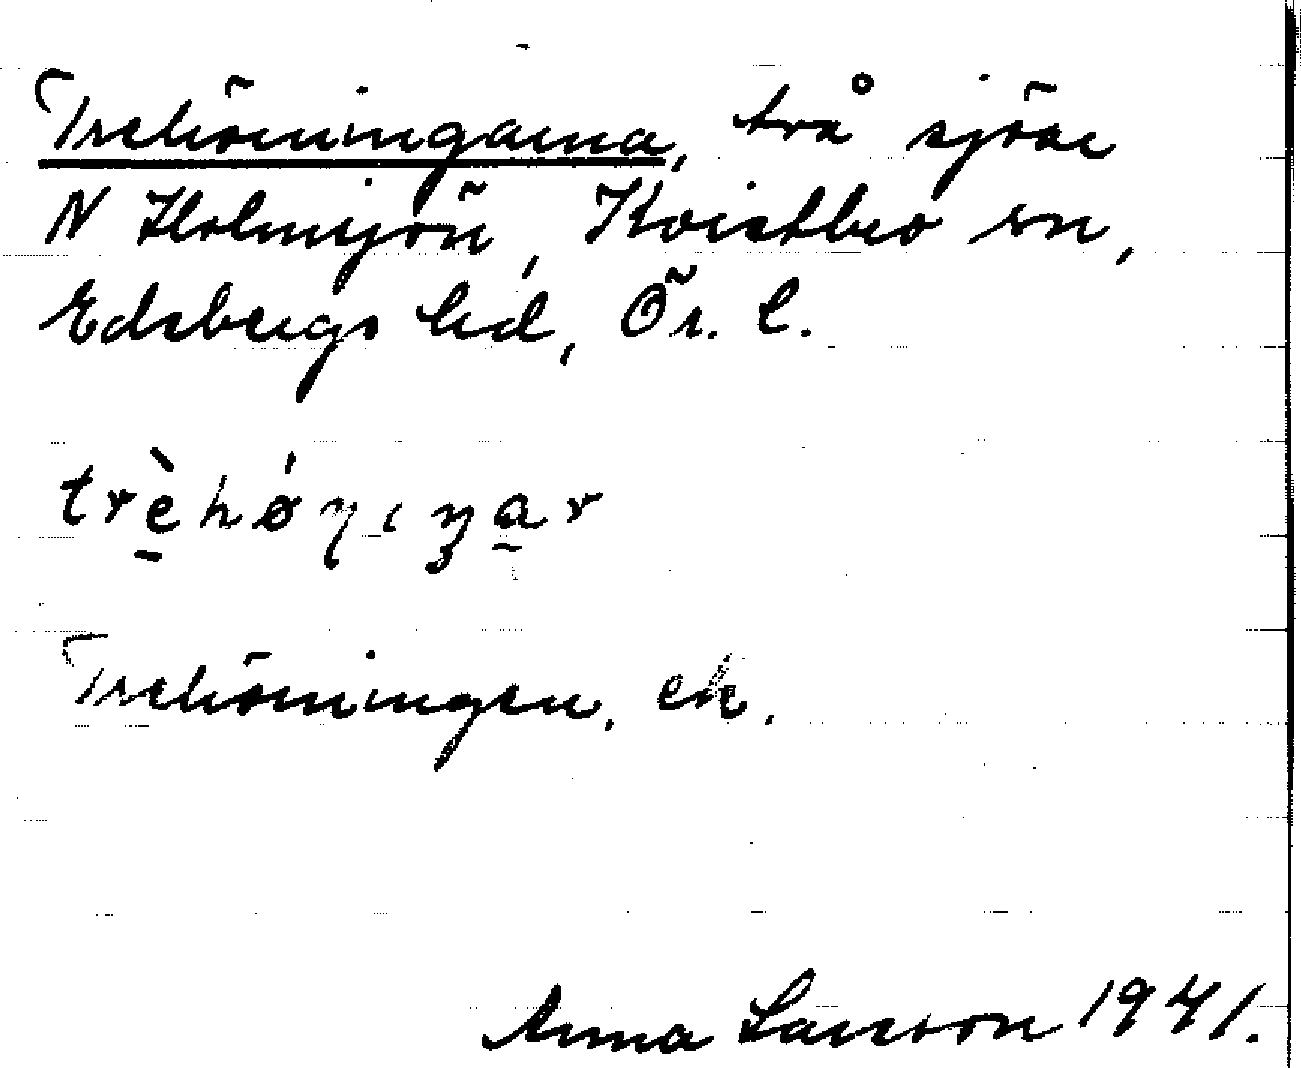 Trehörningarna, två sjöar
N Holmsjön, Kvistbro sn,
Edsbergs hd, Ör. l.
trèhǿṇıŋar
Trehörningen, ek.
Anna Larsson 1941.